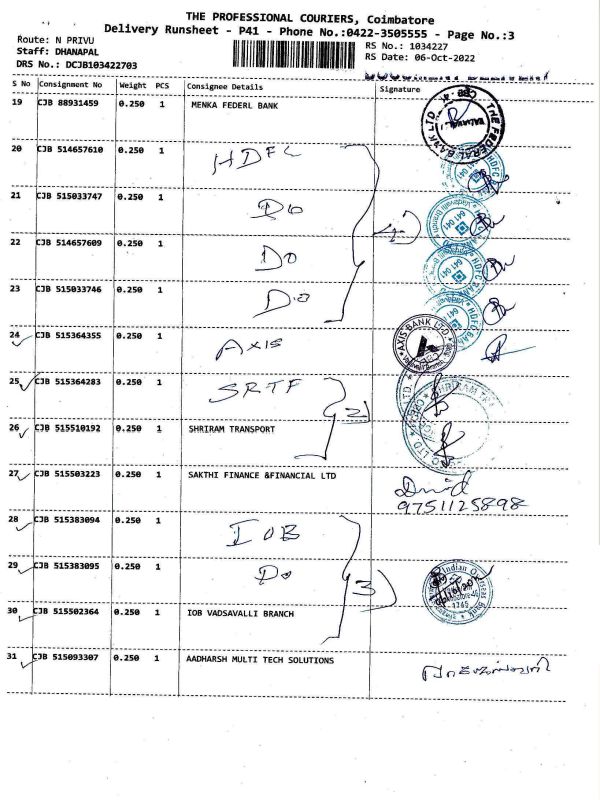 THE PROFESSIONAL COURIERS, Coimbatore
Delivery Runsheet - P41 - Phone No.:0422-3505555 - Page No.:3
Route: N PRIVU
RS No.: 1034227
Staff: DHANAPAL
RS Date: 06-Oct-2022
DRS No.: DCJB103422703
S No Consignment No Weight PCS Consignee Details Signature
19 CJB 88931459 0.250 1 MENKA FEDERL BANK
THE FEDERAL BANK LTD
20 CJB 514657610 0.250 1 HDFC
21 CJB 515033747 0.250 1 Do
4)
22 CJB 514657609 0.250 1 Do
23 CJB 515033746 0.250 1 Do
HDFC BANK
641 041
24 CJB 515364355 0.250 1 AXIS
AXIS BANK LTD
25 CJB 515364283 0.250 1 SRTF
2)
26 CJB 515510192 0.250 1 SHRIRAM TRANSPORT
27 CJB 515503223 0.250 1 SAKTHI FINANCE &FINANCIAL LTD
9751125898
28 CJB 515383094 0.250 1 IOB
29 CJB 515383095 0.250 1 Do
3)
Indian Overseas Bank
30 CJB 515502364 0.250 1 IOB VADSAVALLI BRANCH
31 CJB 515093307 0.250 1 AADHARSH MULTI TECH SOLUTIONS